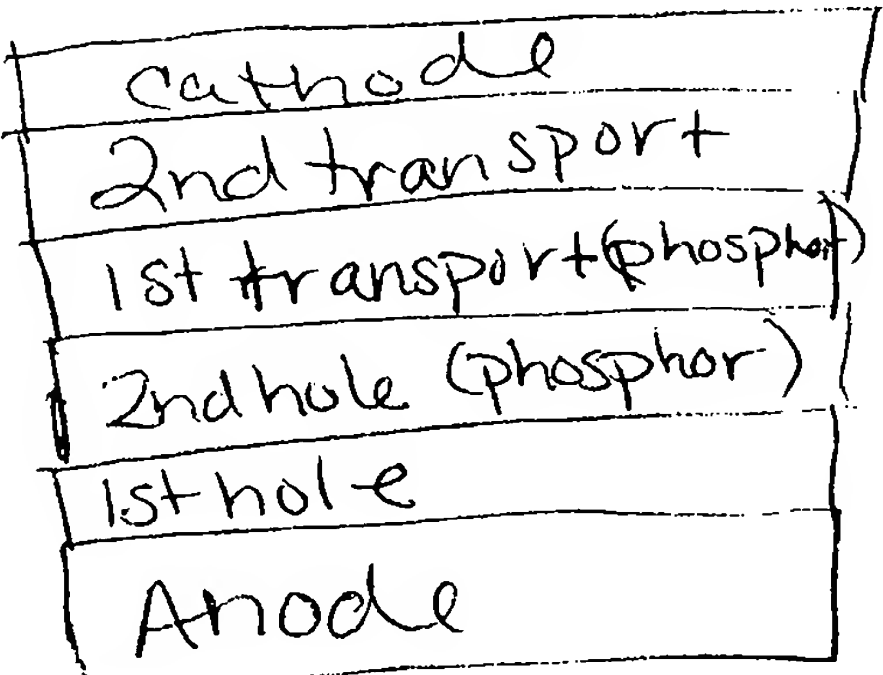 cathode
2nd transport
1st transport (phosphor)
2nd hole (phosphor)
1st hole
Anode